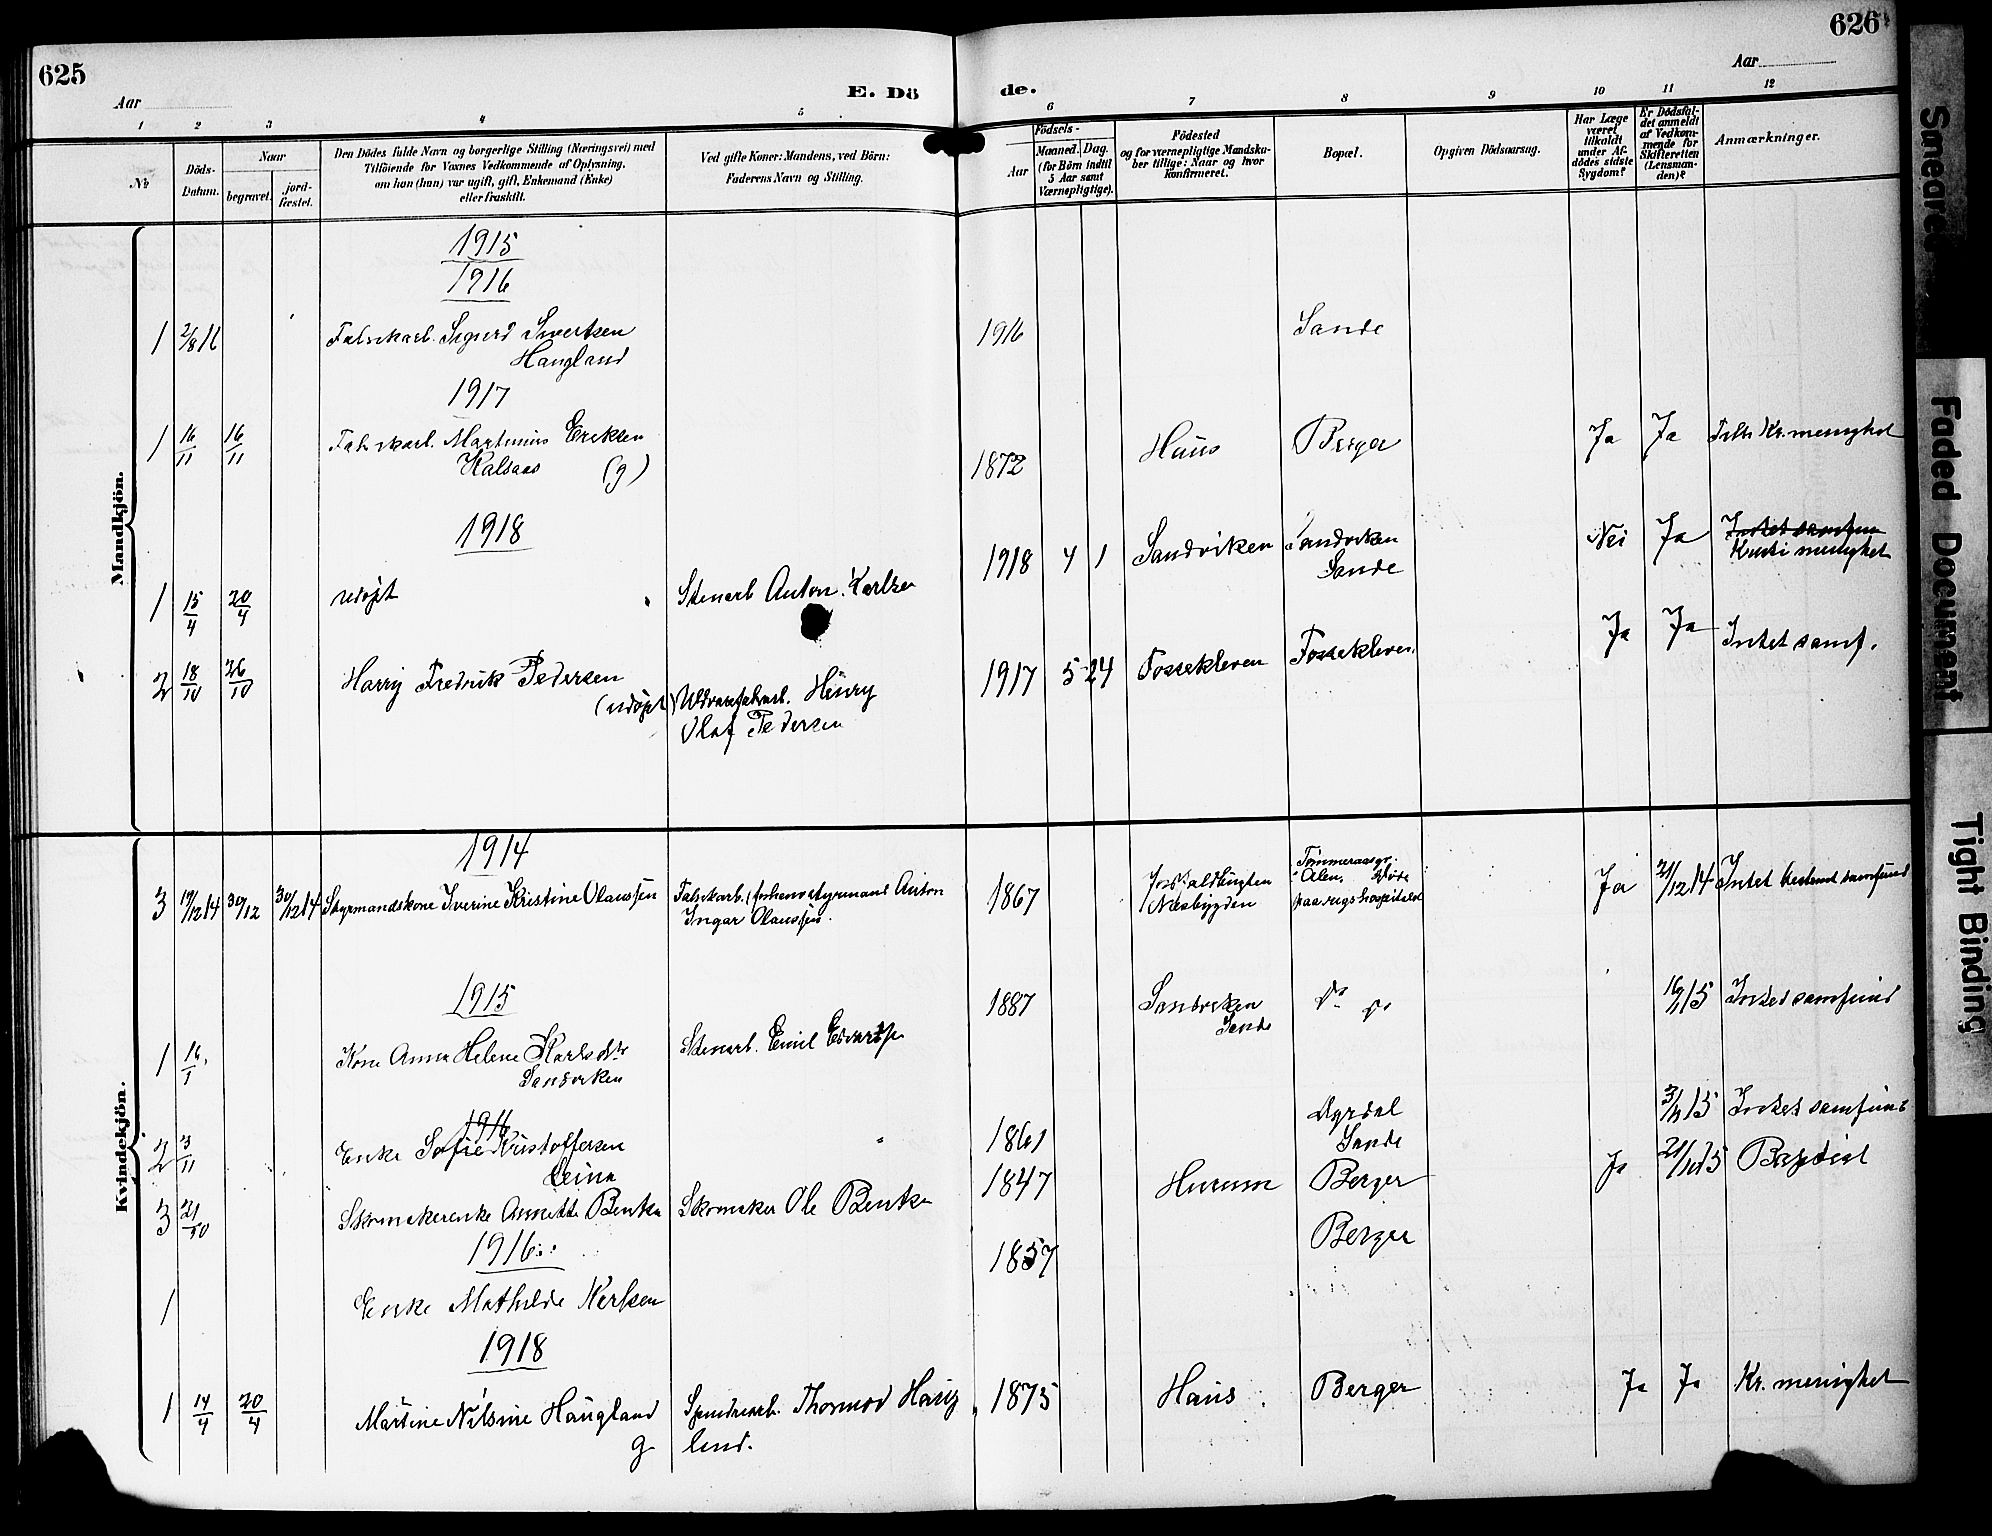 625
626
Aar
Aar
E. Dö
de.
1 2 3 4 5 6 7 8 9 10 11 12
Nr
Döds-
Datum.
Naar
begravet.
jord-
fæstet.
Den Dödes fulde Navn og borgerlige Stilling (Næringsvei) med
Tilföiende for Voxnes Vedkommende af Oplysning,
om han (hun) var ugift, gift, Enkemand (Enke)
eller fraskilt.
Ved gifte Koner: Mandens, ved Börn:
Faderens Navn og Stilling.
Födsels-
Aar
Maaned. Dag.
(for Börn indtil
5 Aar samt
Værnepligtige).
Födested
og for værnepligtige Mandska-
ber tillige: Naar og hvor
konfirmeret.
Bopæl.
Opgiven Dödsaarsag.
Har Læge
været
tilkaldt
under Af-
dödes sidste
Sygdom?
Er Dödsfal-
det anmeldt
af Vedkom-
mende for
Skifteretten
(Lensman-
den)?
Anmærkninger.
Mandkjön.
1915
1916
1 2/8 16 Fabrikarb. Sigurd Sivertsen
Haugland
1916 Sande
1917
1 16/11 16/11 Fabrikarb. Martinius Eriksen
Kalsaas (g)
1872 Haus Berger Ja Ja Kr. menighet
1918
1 15/4 20/4 udøpt Stenarb Anton Karlsen
1918 4 1 Sandviken Sandviken
Sande
Nei Ja Intet samfun
Kristi menighet
2 18/10 26/10 Harry Fredrik Pedersen
(udøpt) Uldvarefabrarb. Henry
Olaf Pedersen
1917 5 24 Fossekleven Fossekleven Ja Ja Intet samf.
Kvindekjön.
1914
3 19/12 14 30/12 30/12 14 Styrmandskone Iverine Kristine Olaussen
Fabrikarb. (forhenv styrmand Anton
Ingar Olaussen.
1867
Næsbygden
paa rigshospitalet
Ja 21/12 14 Intet bestemt samfund
1915
1 16/1 Kone Anna Helene Karlsdtr
Sandviken
Stenarb. Emil Edvardsen
1887 Sandviken
Sande
Do do
16/1 15 Intet samfund
1916
2 3/11 Enke Sofie Kristoffersen
1861
Sande
3/11 15 Intet samfund
3 21/10 Skomakerenke Annette Bentsen Skomaker Ole Bentsen
1847 Hurum Berger Ja 21/10 15 Baptist
1916
1 Enke Mathilde
1857 Berger
1918
1 14/4 20/4 Martine Nilsine Haugland
g
Spinderarb. Thormod Haug
land.
1875 Haus Berger Ja Ja Kr. menighet
Smeared
Faded Document
Tight Binding